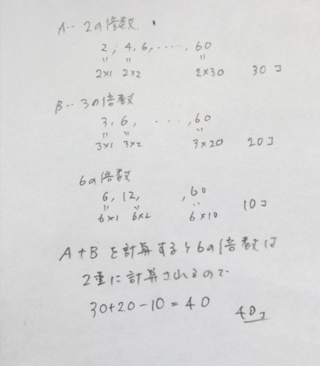 A‥2の倍数
2, 4, 6, ‥‥, 60
"  "  "
2×1 2×2 2×30 30コ
B‥3の倍数
3, 6, ‥‥, 60
"  "  "
3×1 3×2 3×20 20コ
6の倍数
6, 12, , 60
"  "  "
6×1 6×2 6×10 10コ
A+Bを計算すると6の倍数は
2重に計算されるので
30+20-10=40 40コ